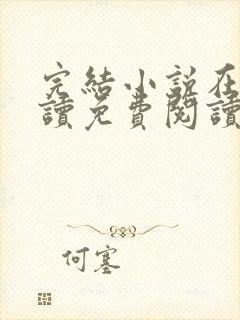 完結小說在
讀免費閱讀
何塞